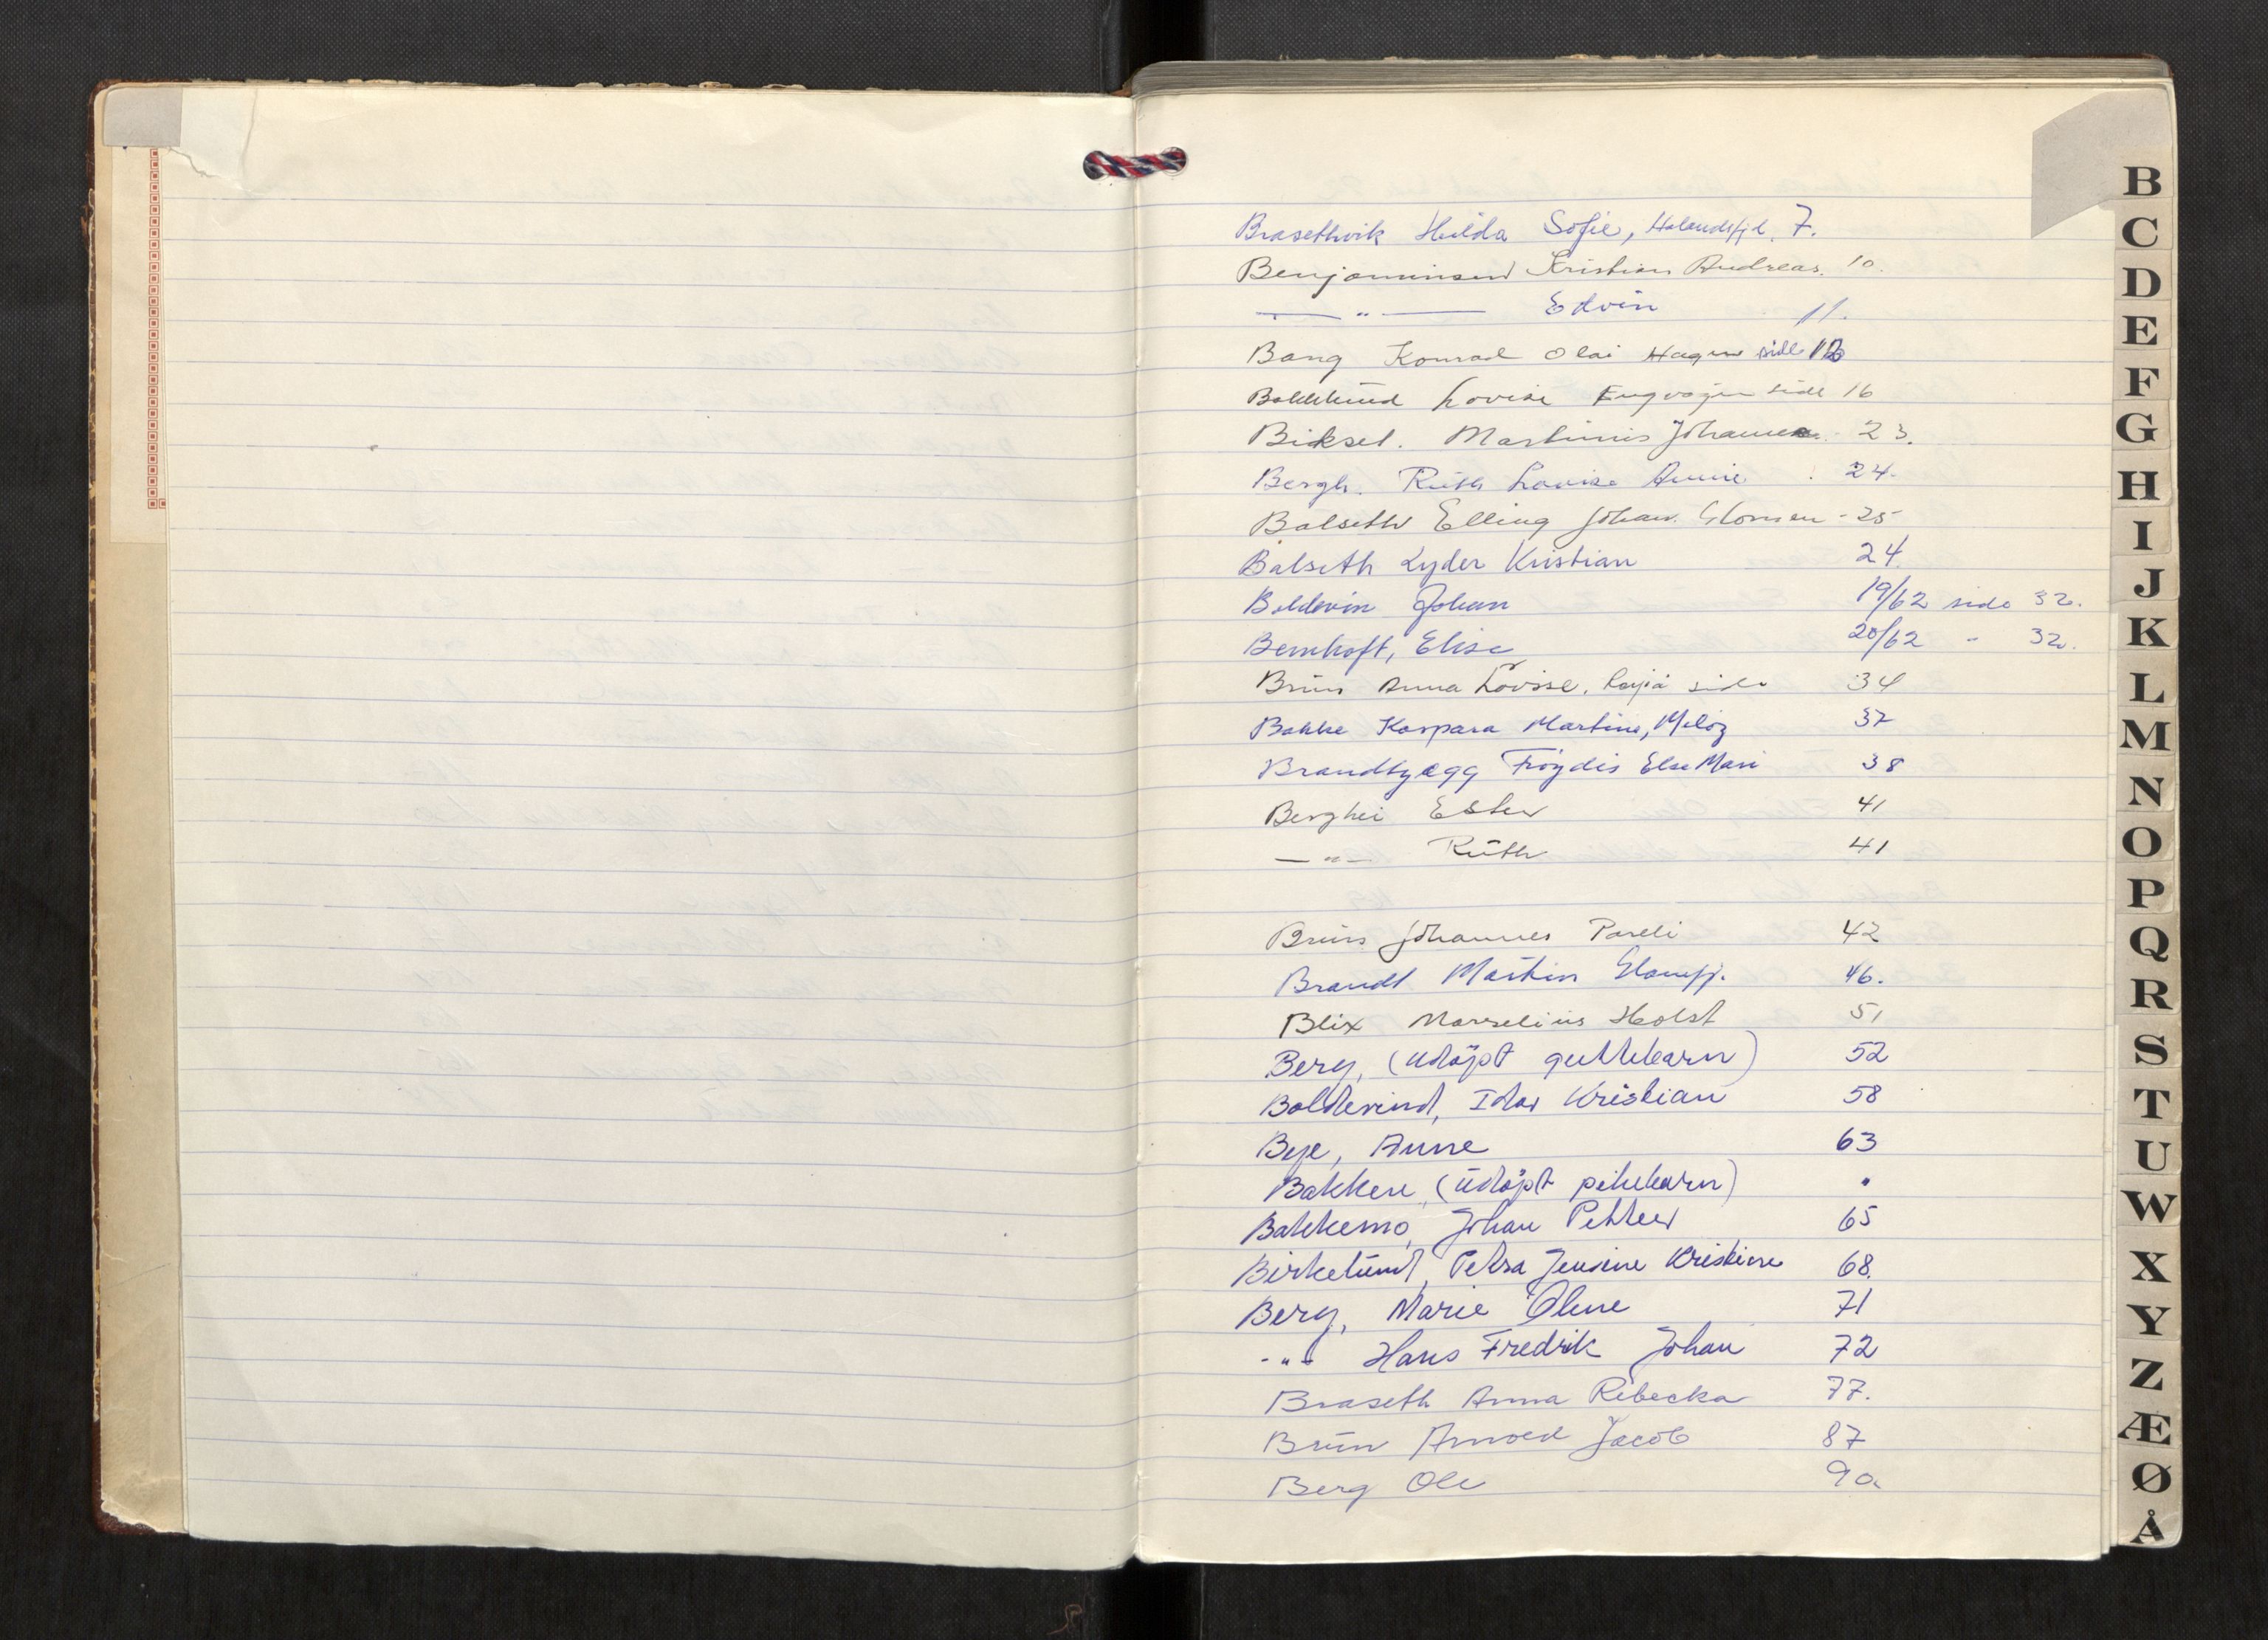 Brasethvik Hilda Sofie, Holandsfjd. 7.
Benjaminsen Kristian Andreas. 10.
— " — Edvin 11.
Bang Konrad Olai Hagen side
Lovise Engvågen side 16
Biksel. Martinus 23.
Bergh. Ruth Lovise Annie 24.
Balseth Elling Johan. Glomen - 25
Balseth Lyder Kristian 24.
Boldevin Johan 19/62 side 32.
Bernhoft, Elise 20/62 - 32.
Brun Anna Lovise. side 34
Bakke Kaspara Martine, Meløy 37
Brandbygg Frøydis Else Mari 38
Berghei Ester 41
— " — Ruth 41
Bruns Johannes Pareli 42
Brandt Martin Glomfj. 46.
Blix Marselius Holst 51
Berg, (udøpt guttebarn) 52
Boldevind, Idar Kristian 58
Bye, Anne 63
Bakken, (udøpt pikebarn) "
Bakkemo, Johan Petter 65
Birkelund, Petra Jensine Kristine 68.
Berg, Marie Oline 71
- " - Hans Fredrik Johan 72
Braseth Anna Rebecka 77.
Brun Arnold Jacob 87
Berg Ole 90.
B
C
D
E
F
G
H
I
J
K
L
M
N
O
P
Q
R
S
T
U
W
X
Y
Z
Æ
Ø
Å